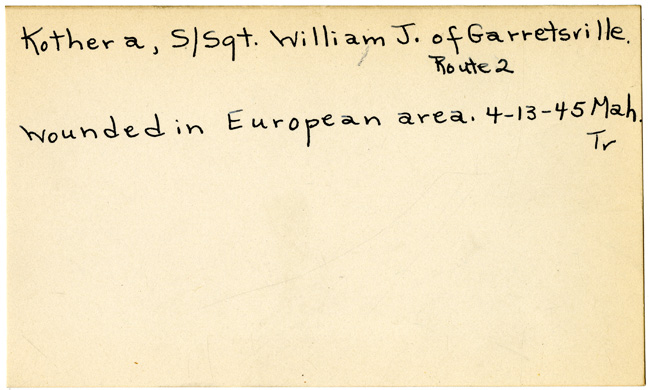 Kothera, S/Sgt. William J. of Garretsville.
Route 2
wounded in European area. 4-13-45 Mah.
Tr